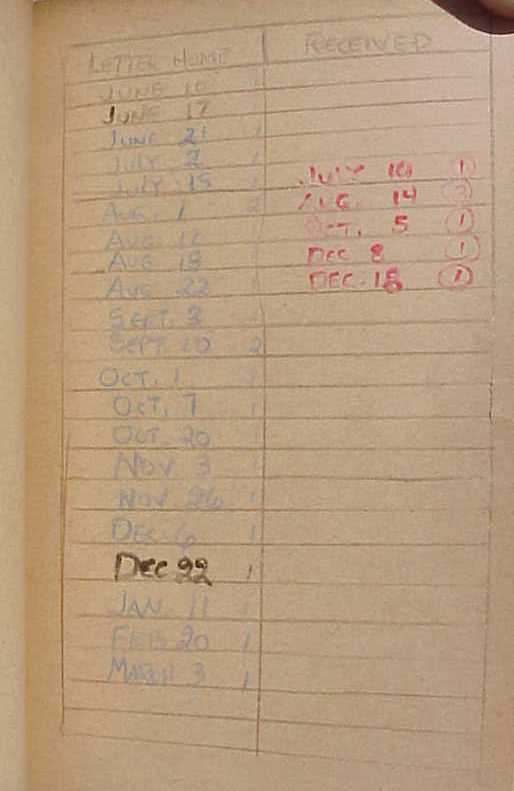 LETTER HOME RECEIVED
JUNE 10 1
JUNE 17
JUNE 21 1
JULY 2 1
JULY 15 1 JULY 10 1
AUG. 1 2 AUG. 14
AUG 12 OCT. 5 1
AUG 18 DEC 8 1
AUG 22 1 DEC. 18 1
SEPT. 3
SEPT 10 2
OCT. 1 1
OCT. 7 1
OCT 20 1
NOV 3 1
NOV 26 1
DEC. 6 1
DEC 22 1
JAN. 11 1
FEB 20 1
MARCH 3 1